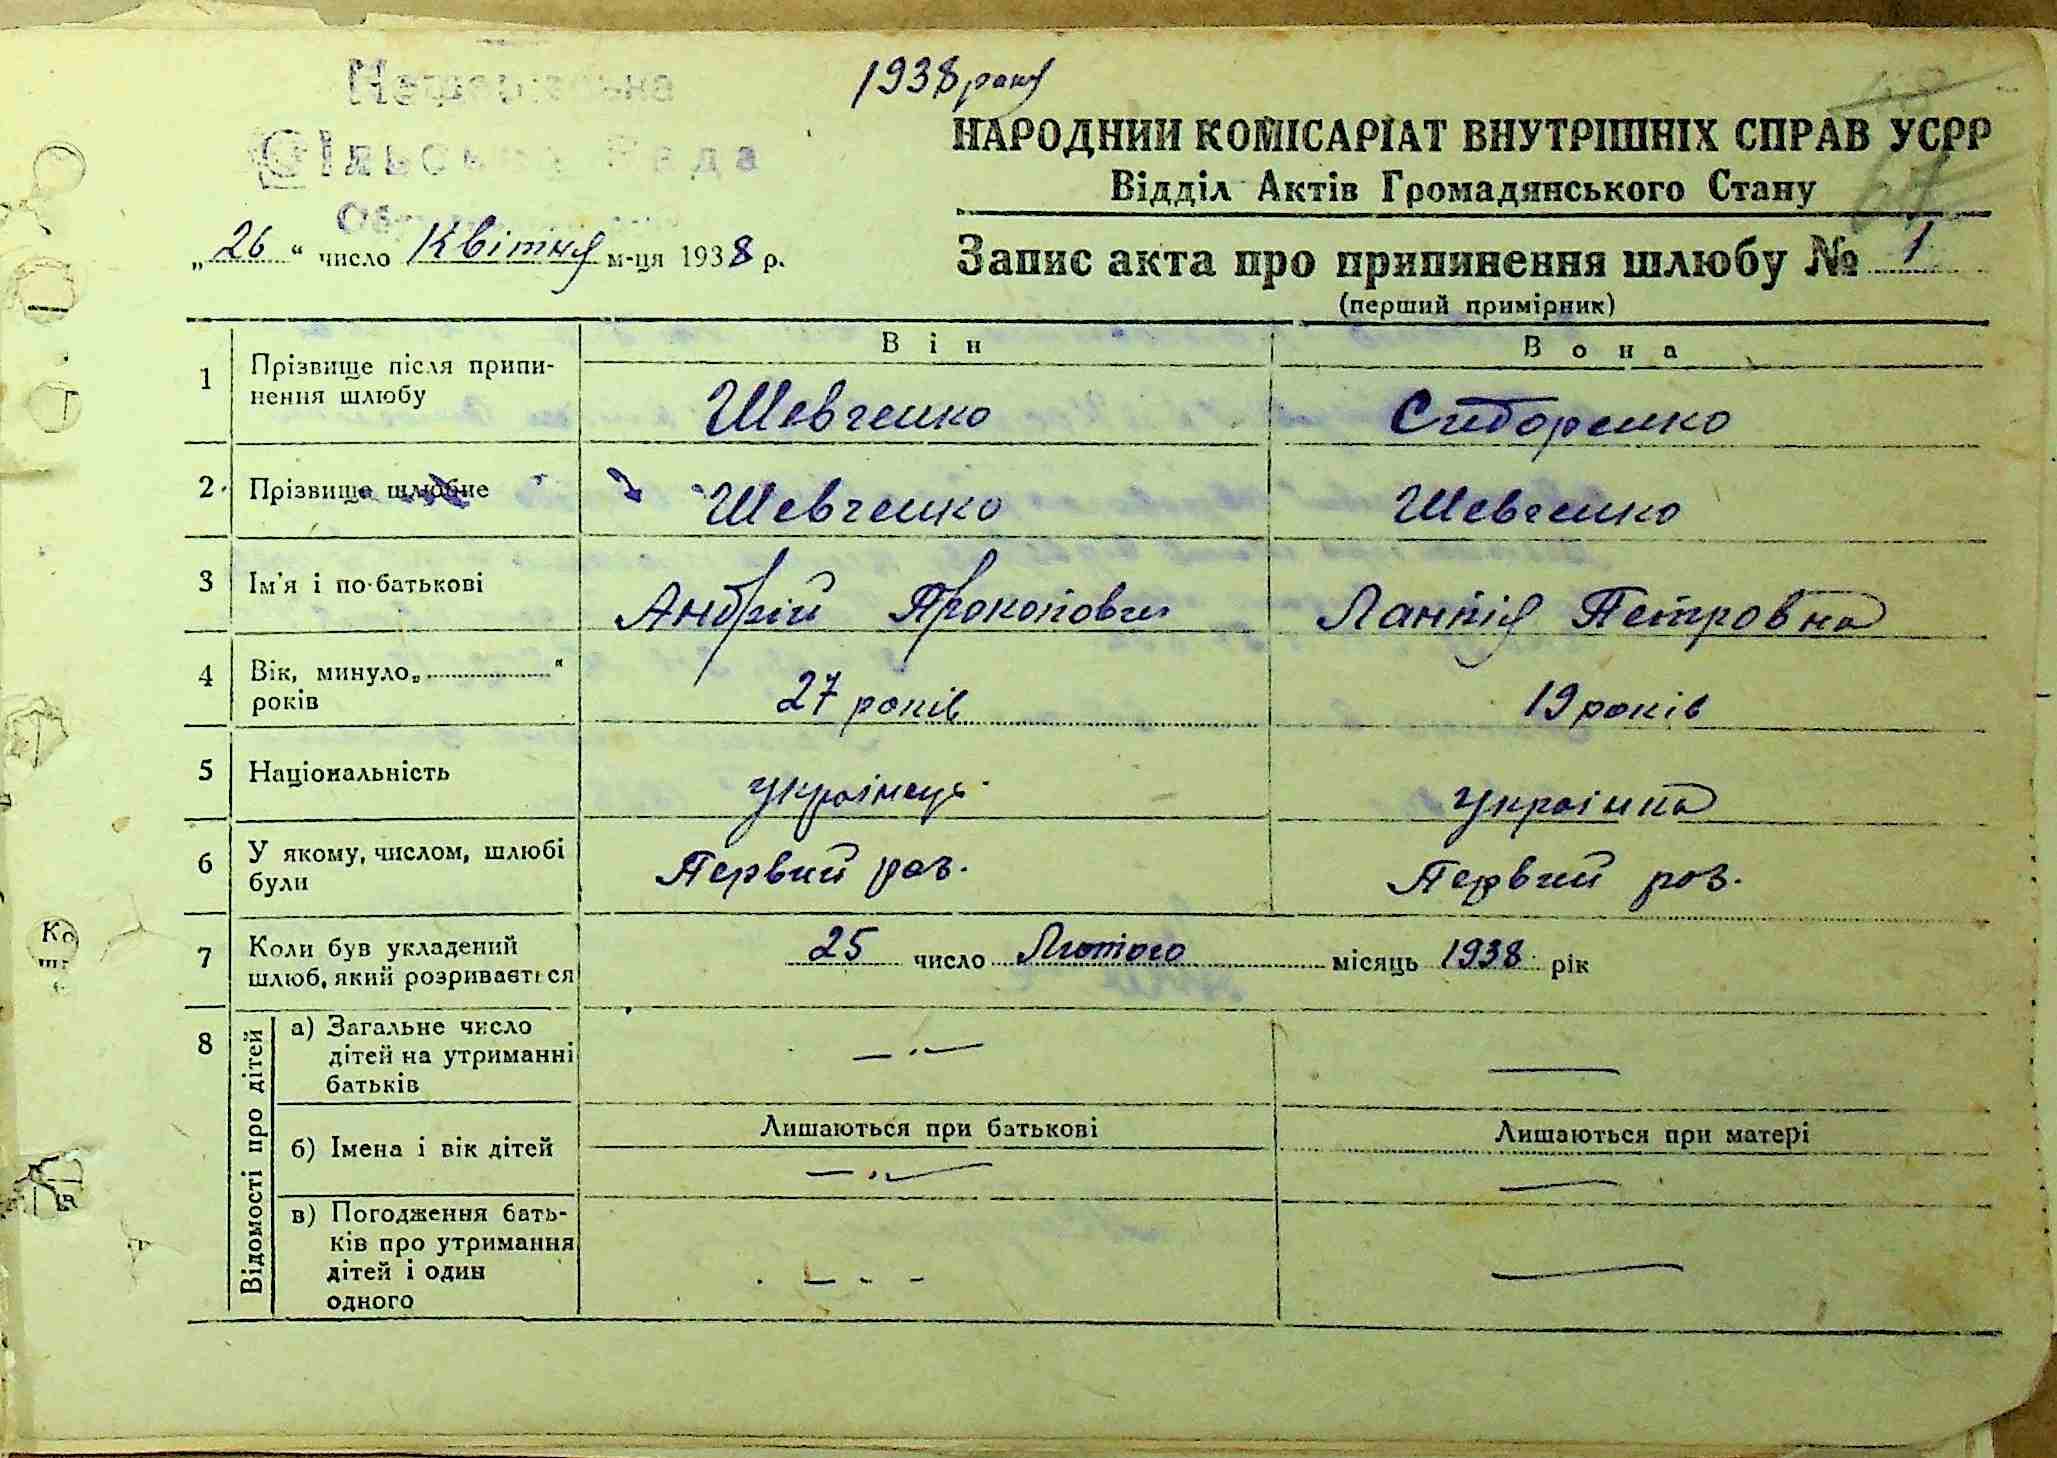 1938 року
Сільська Рада
НАРОДНИЙ КОМІСАРІАТ ВНУТРІШНІХ СПРАВ УСРР
Відділ Актів Громадянського Стану
„26“ число Квітня м-ця 1938 р.
Запис акта про припинення шлюбу № 1
(перший примірник)
Він Вона
1 Прізвище після припи-
нення шлюбу Шевченко Сидоренко
2 Прізвище шлюбне Шевченко Шевченко
3 Ім'я і по-батькові Андрій Прокопович Ланпія Петровна
4 Вік, минуло „ “
років 27 років 19 років
5 Національність українець українка
6 У якому, числом, шлюбі
були Первий раз. Первий раз.
7 Коли був укладений
шлюб, який розривається 25 число Лютого місяць 1938 рік
8 Відомості про дітей
а) Загальне число
дітей на утриманні
батьків — · — —
Лишаються при батькові Лишаються при матері
б) Імена і вік дітей — · — —
в) Погодження бать-
ків про утримання
дітей і один
одного - - - —